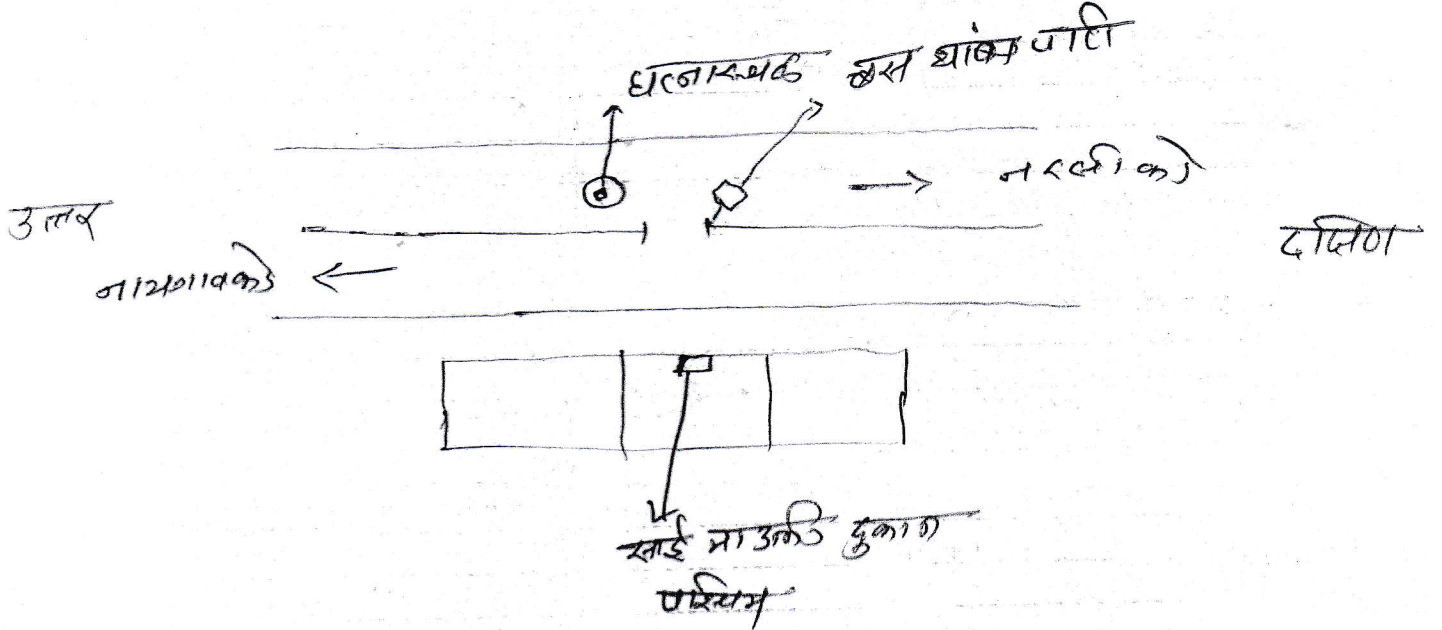 घटनास्थळ बस थांबा पाटी
नरसीकडे
उत्तर
दक्षिण
नायगावकडे
साई दुकान
पश्चिम